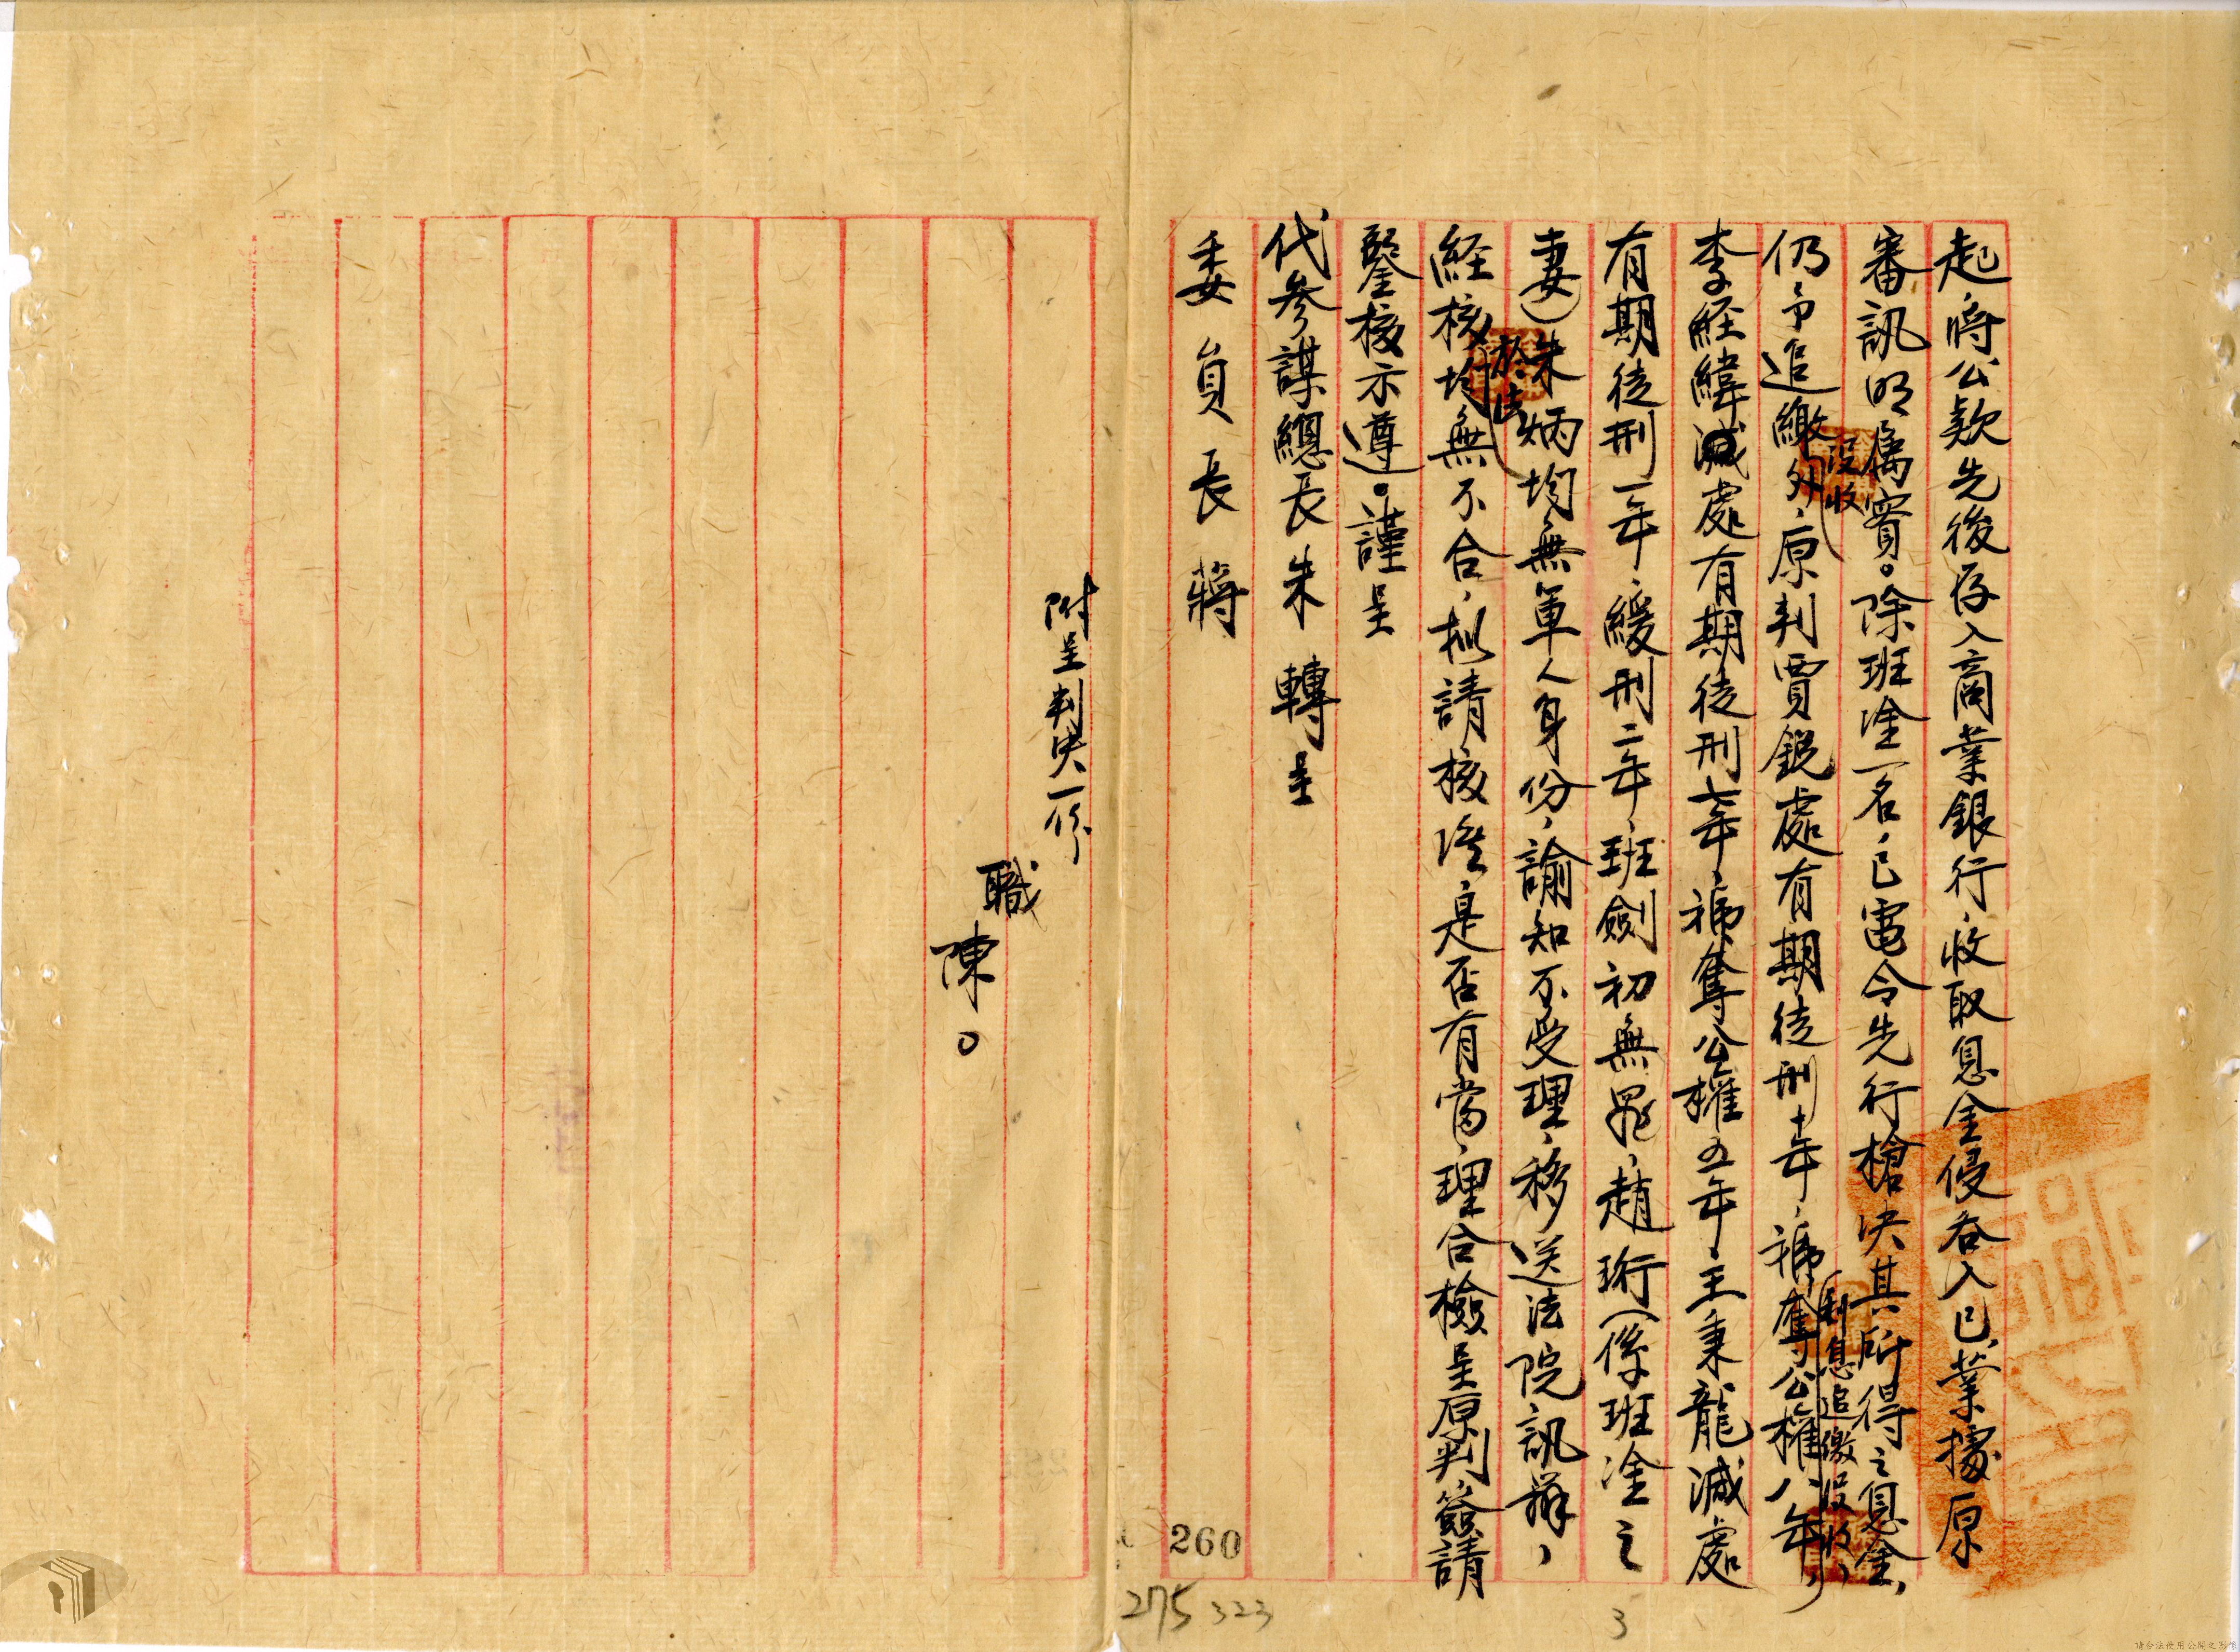 起，將公款先後存入商業銀行，收取息金侵吞入已，業據原
審訊明屬實。除班淦一名，已電令先行槍決其所得之息金，
仍予追繳沒收外，原判賈銳處有期徒刑十年，褫奪公權八年，利息追繳沒收，
李經緯減處有期徒刑七年，褫奪公權五年，王秉龍減處
有期徒刑一年，緩刑二年，班劍初無罪，趙珩（係班淦之
妻）朱炳均無軍人身份，諭知不受理，移送法院訊辦，
経核於法均無不合，擬請核准，是否有當，理合檢呈原判簽請
鑒核示遵。謹呈
代參謀總長朱 轉呈
委員長蔣
附呈判決一份
職
陳○
260
275 323
3
請合法使用公開之影像